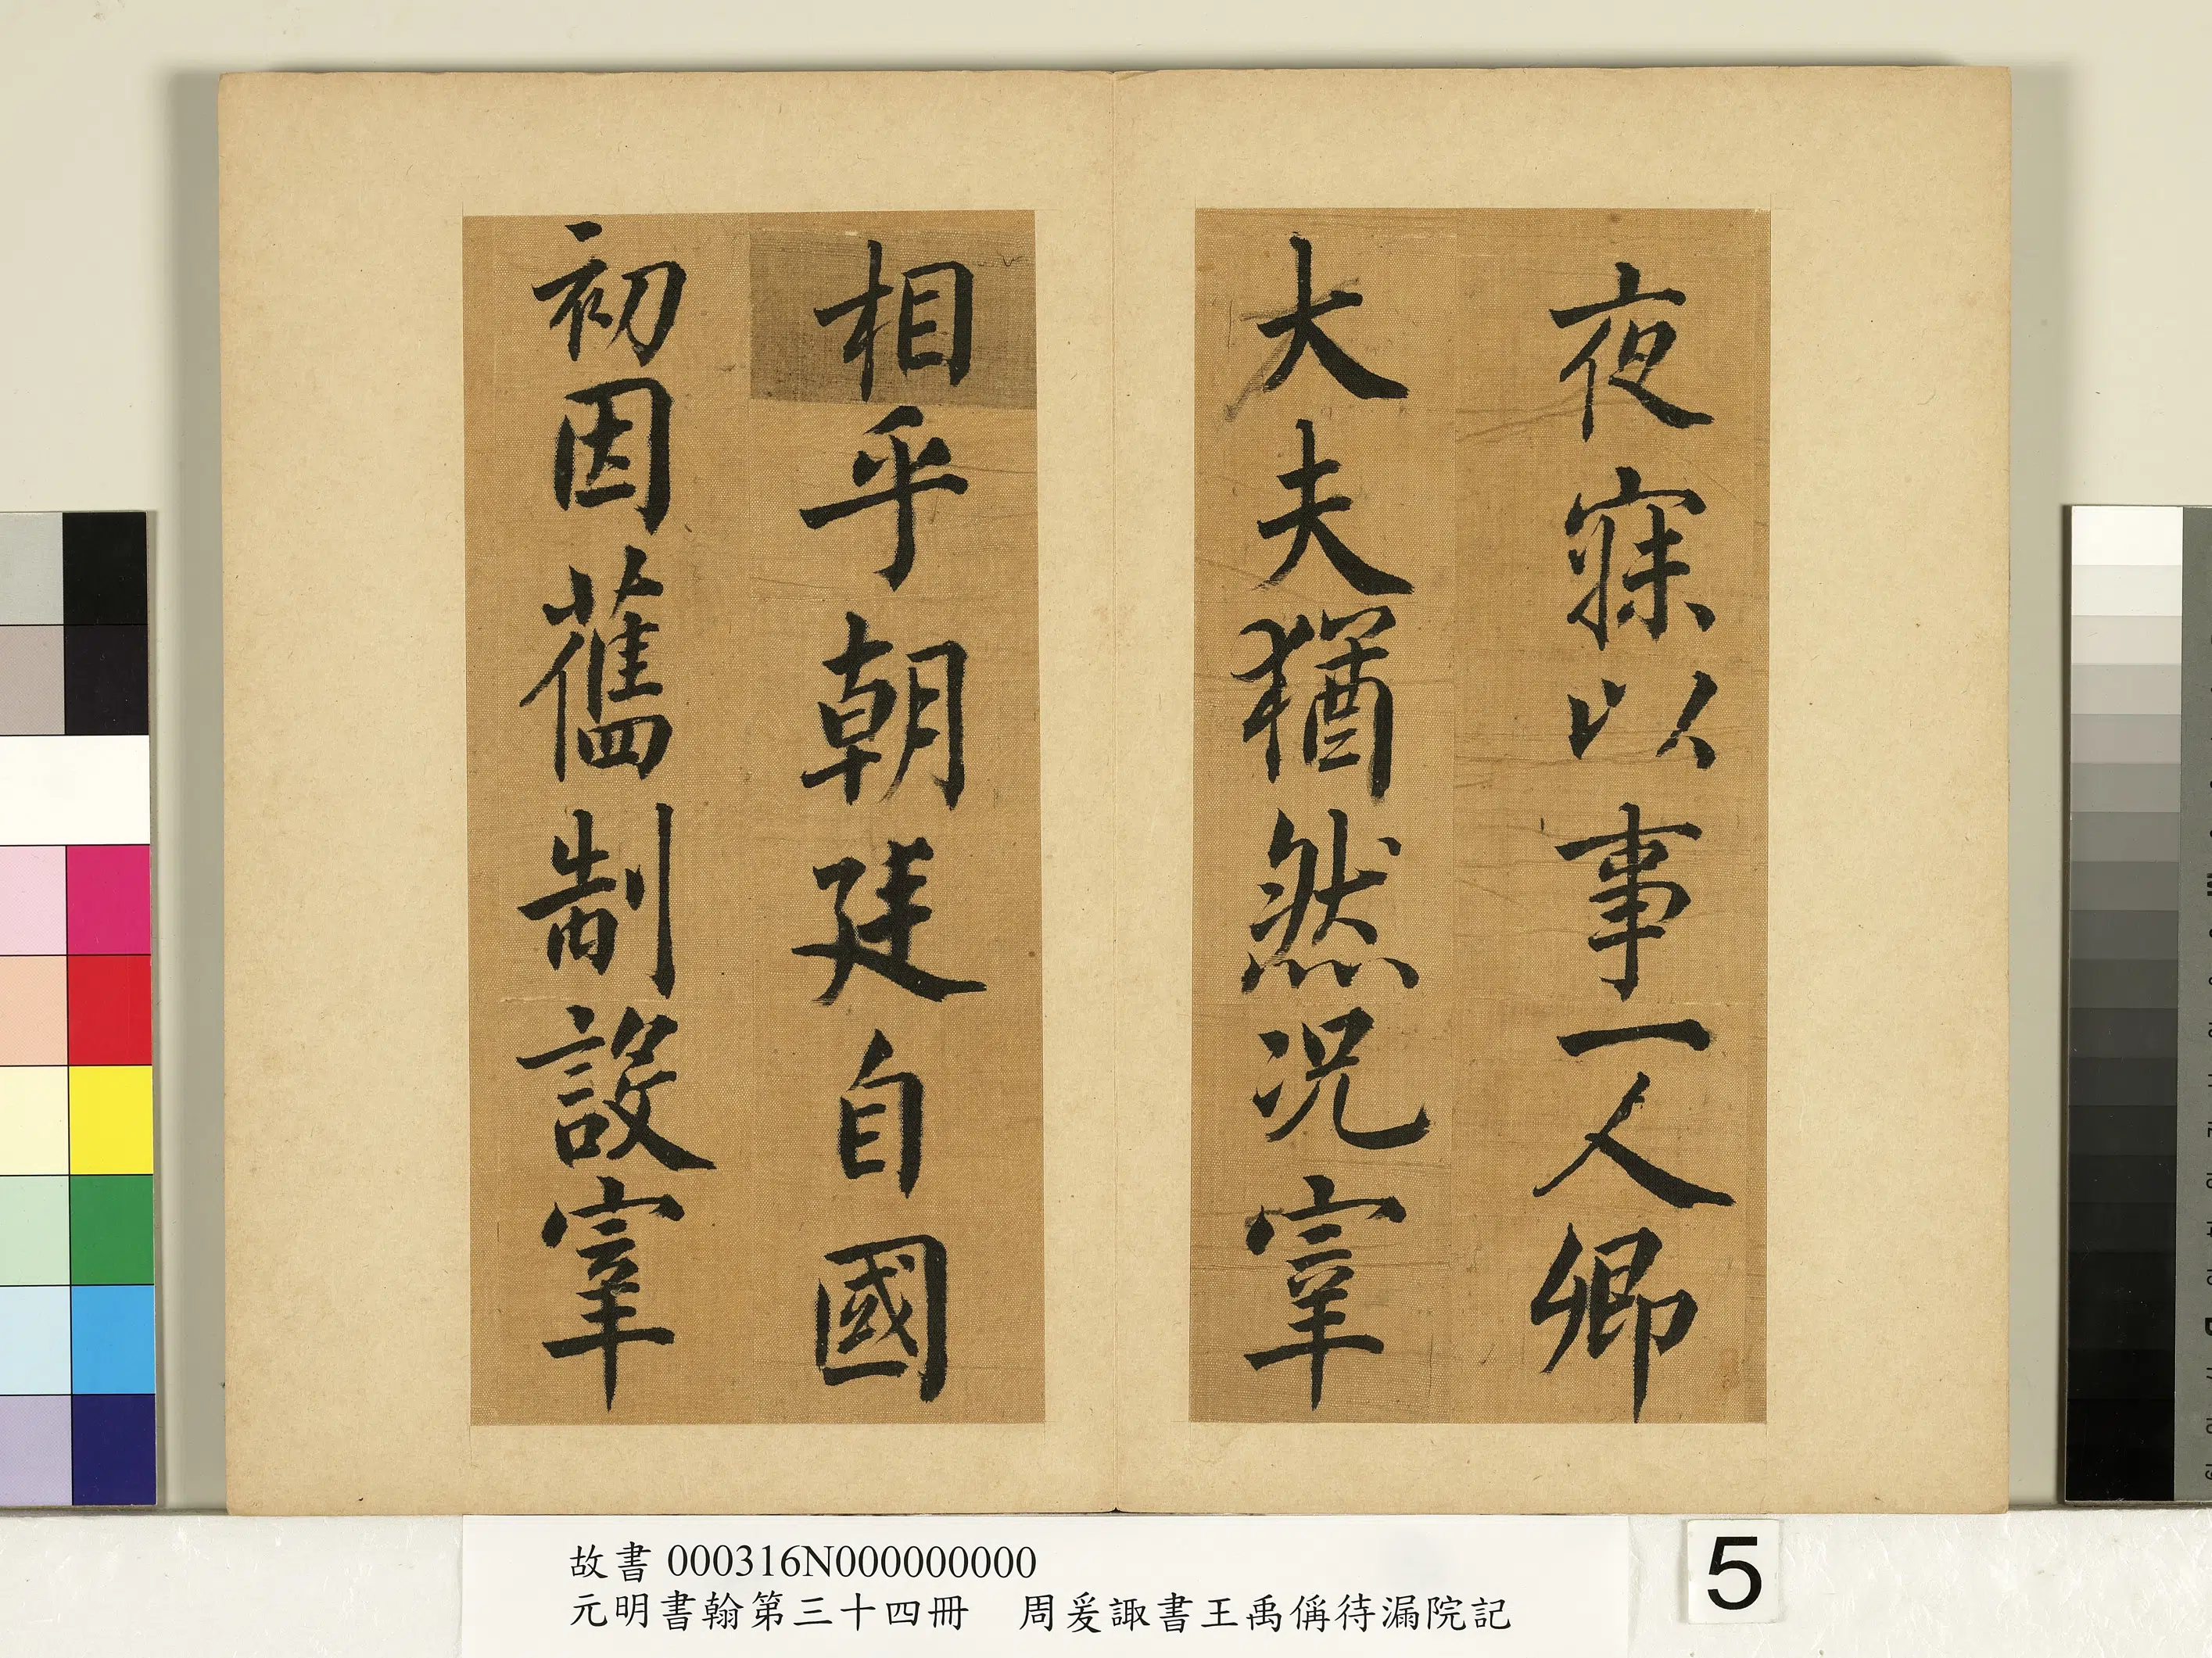 夜寐以事一人卿
大夫猶然况宰
相乎朝廷自國
初因舊制設宰
故書 000316N000000000
元明書翰第三十四冊　周爰諏書王禹偁待漏院記
5